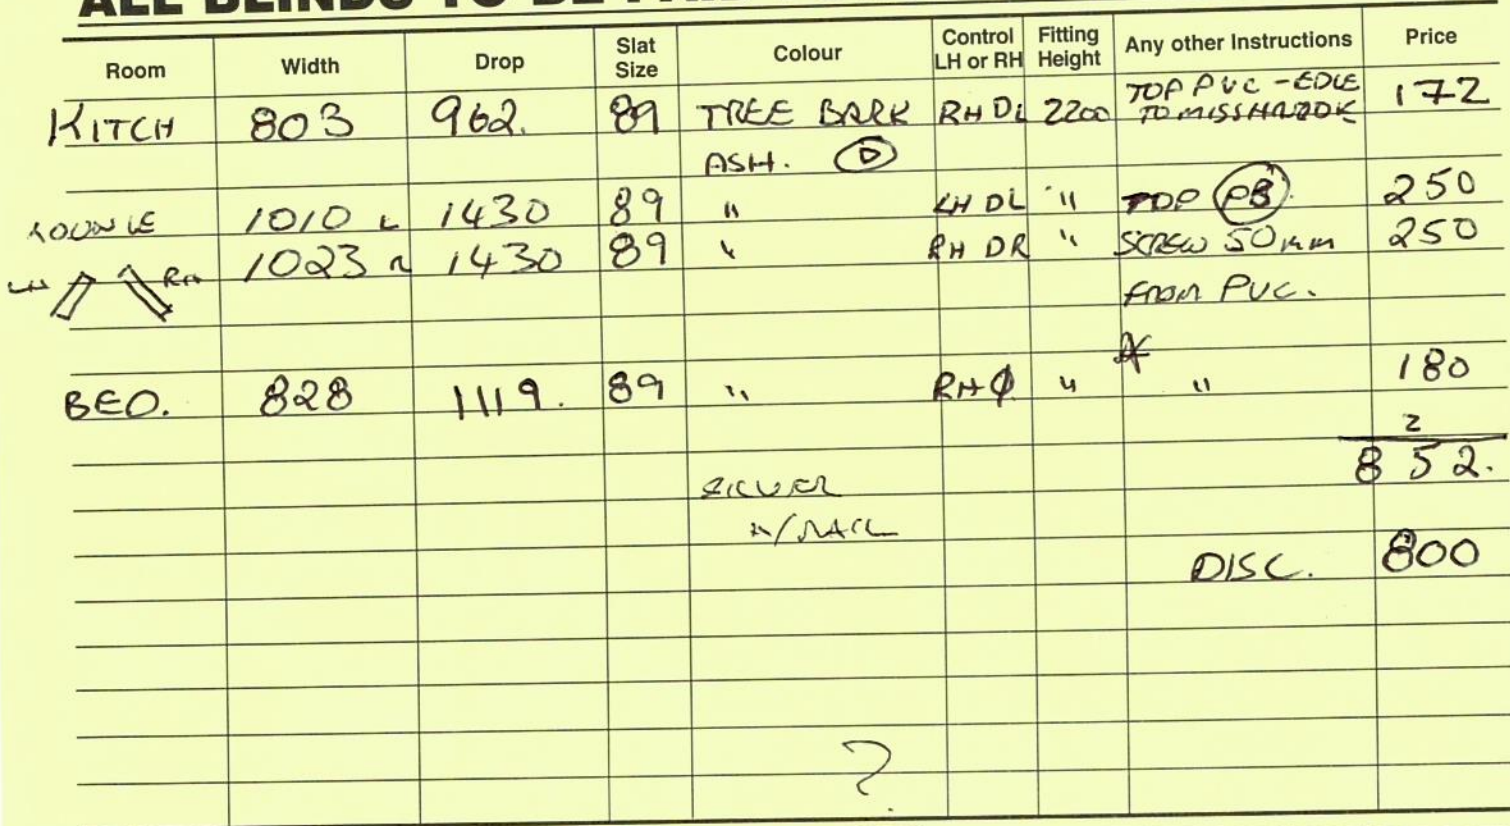 ALL BLINDS TO BE
Room Width Drop Slat Size Colour Control LH or RH Fitting Height Any other Instructions Price
KITCH 803 962. 89 TREE BARK RH DL 2200 TOP PVC - EDGE 172
TO MISS HANDLE
ASH. (D)
LOUNGE 1010 L 1430 89 " LH DL " TOP (PB) 250
1023 R 1430 89 " RH DR " SCREW 50mm 250
LH RH FROM PVC.
BED. 828 1119. 89 " RH " " 180
2
852.
SILVER
H/RAIL
DISC. 800
?